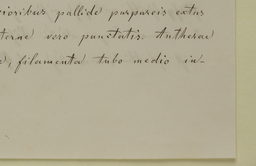 rioribus pallide purpureis extus
terne vero punctatis. Antherae
filamenta tubo medio in-